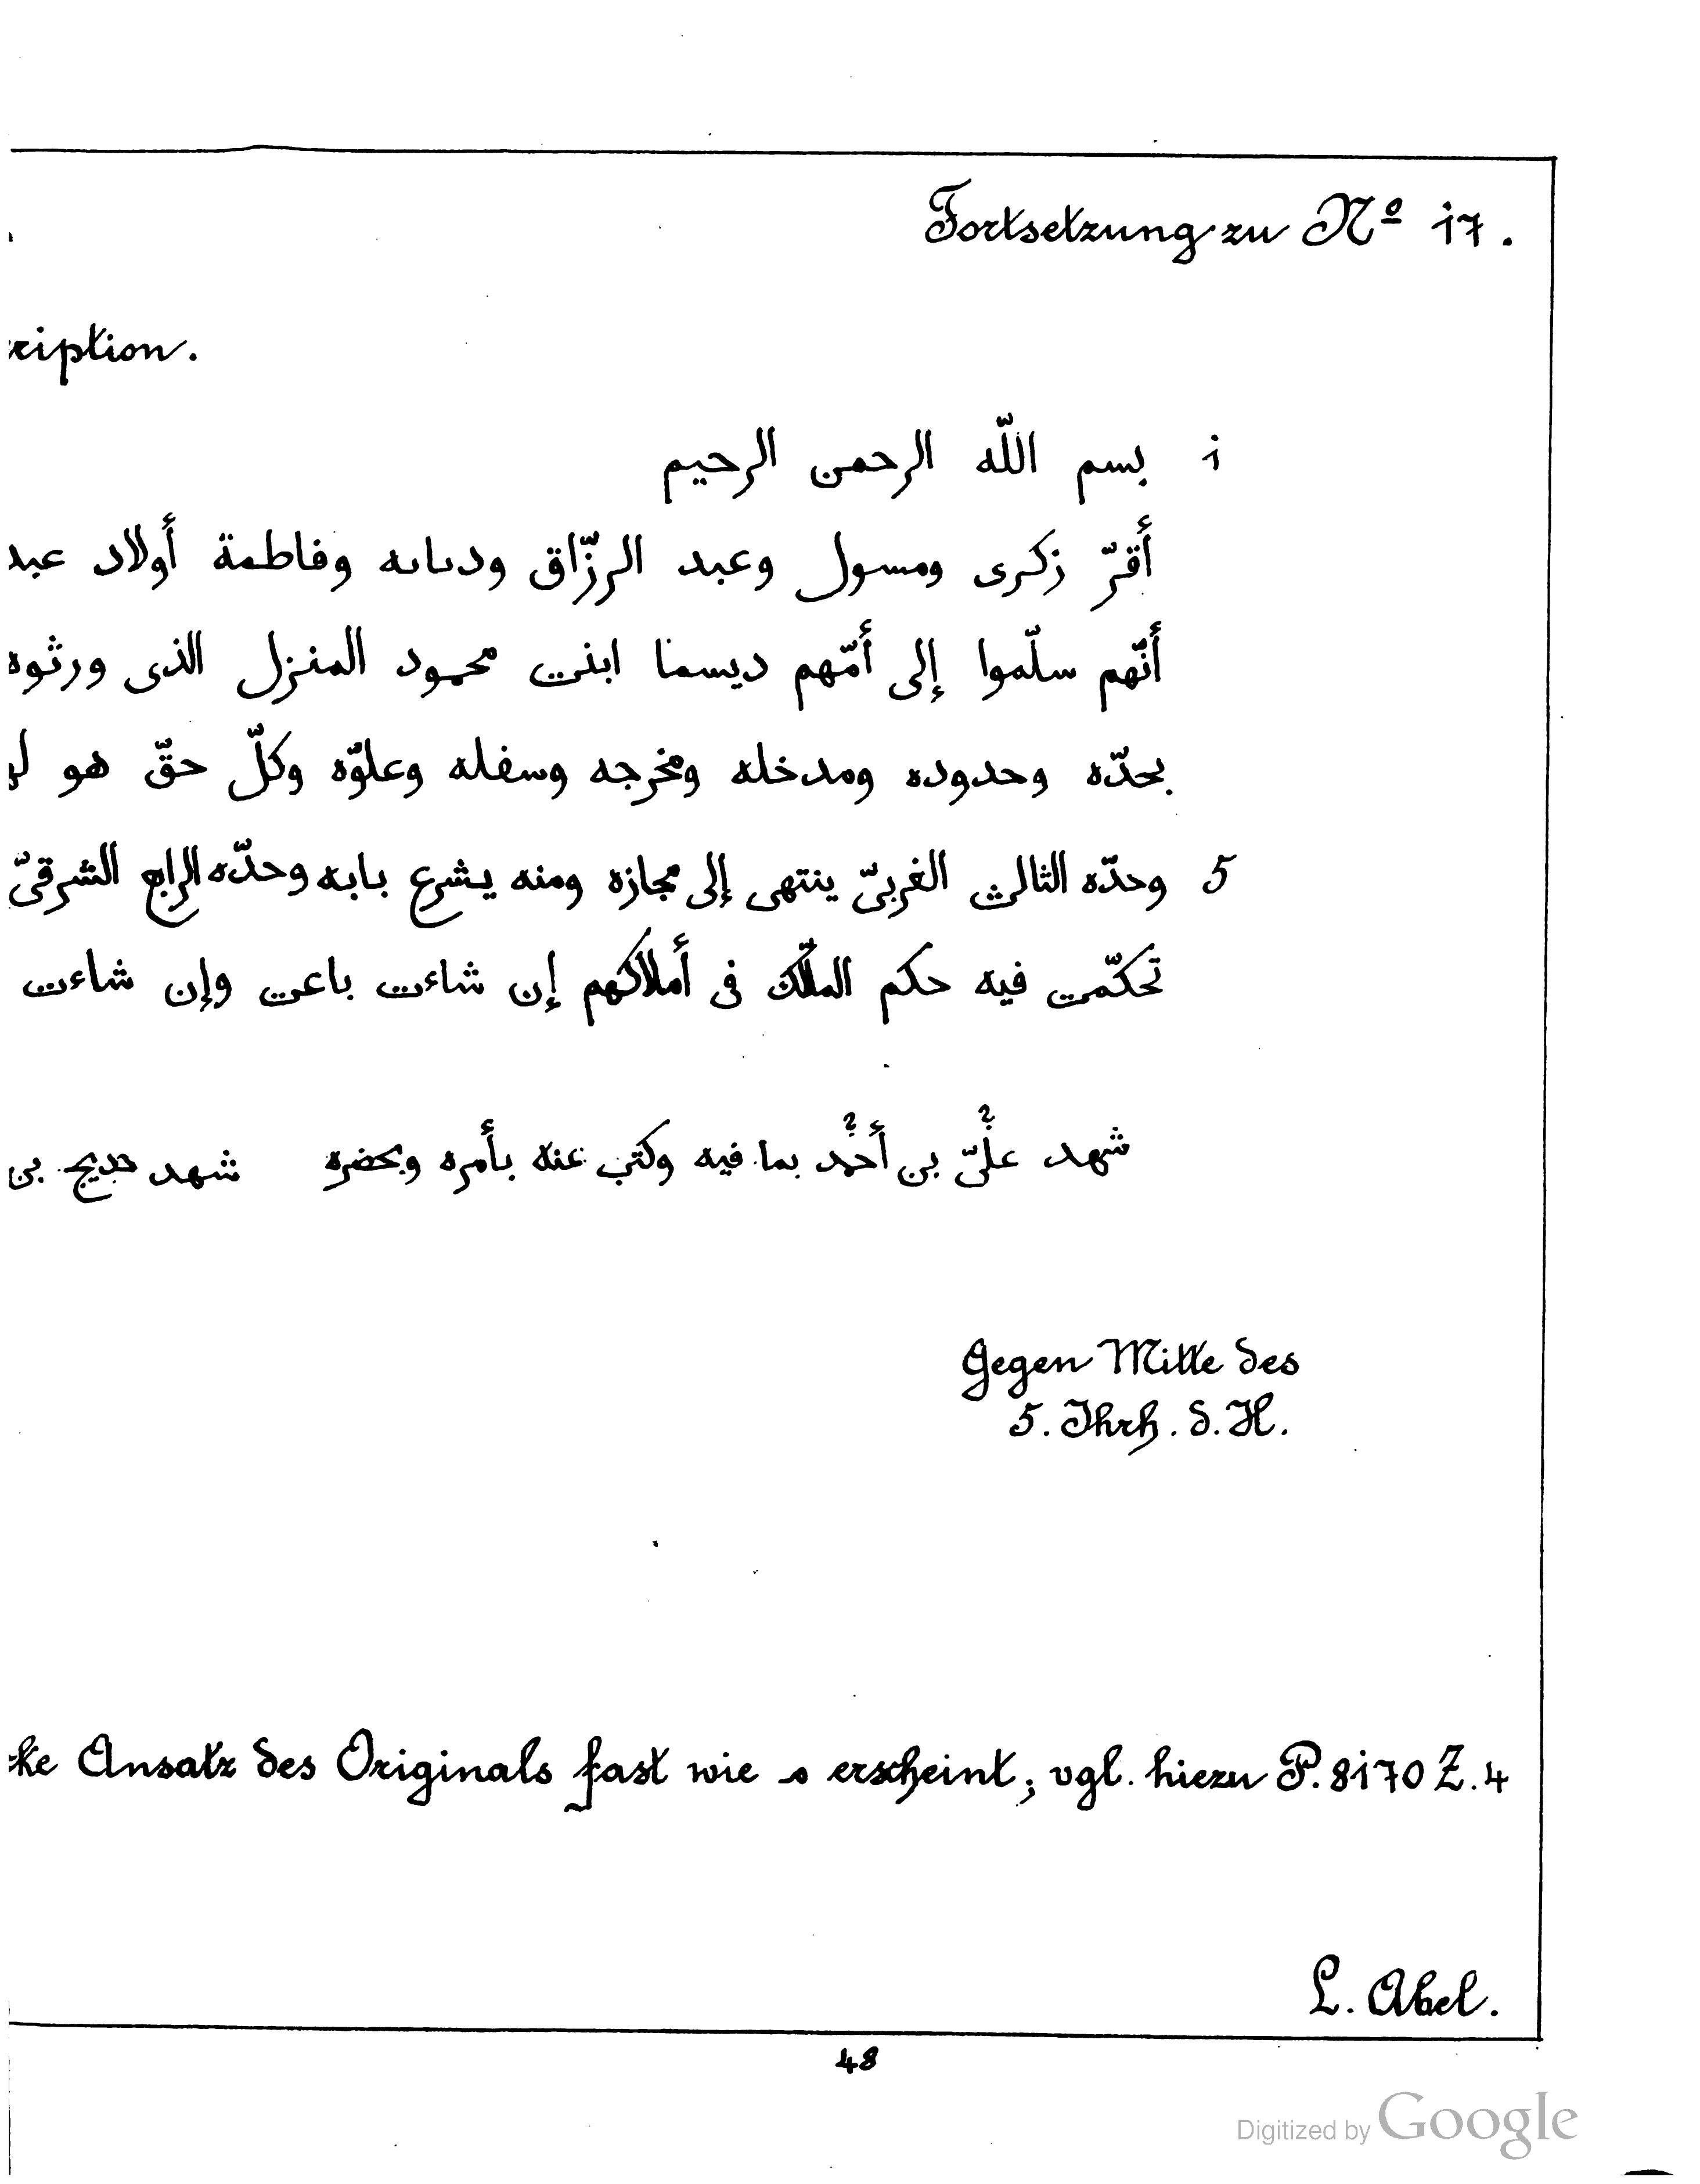 Fortsetzung zu Nº 17.
ription.
1 بسم اللّه الرحمن الرحيم
أقرّ زكرى ومسول وعبد الرزّاق ودىاىه وفاطمة أولاد عبد
أنّهم سلّموا إلى أمّهم ديسمنا ابنت محمود المنزل الذى ورثوه
بحدّه وحدوده ومدخله ومخرجه وسفله وعلوّه وكلّ حقّ هو
5 وحدّه الثالث الغربىّ ينتهى إلى مجازه ومنه يشرع بابه وحدّه الرابع الشرقىّ
تحكّمت فيه حكم الملّاك فى أملاكهم إن شاءت باعت وإن شاءت
شهد علىّ بن أحمد بما فيه وكتب عنه بأمره وبحضره شهد حديج بن
Gegen Mitte des
5. Jhrh. d. H.
ke Ansatz des Originals fast wie ه erscheint; vgl. hiezu P. 8170 Z. 4
L. Abel.
48
Digitized by Google